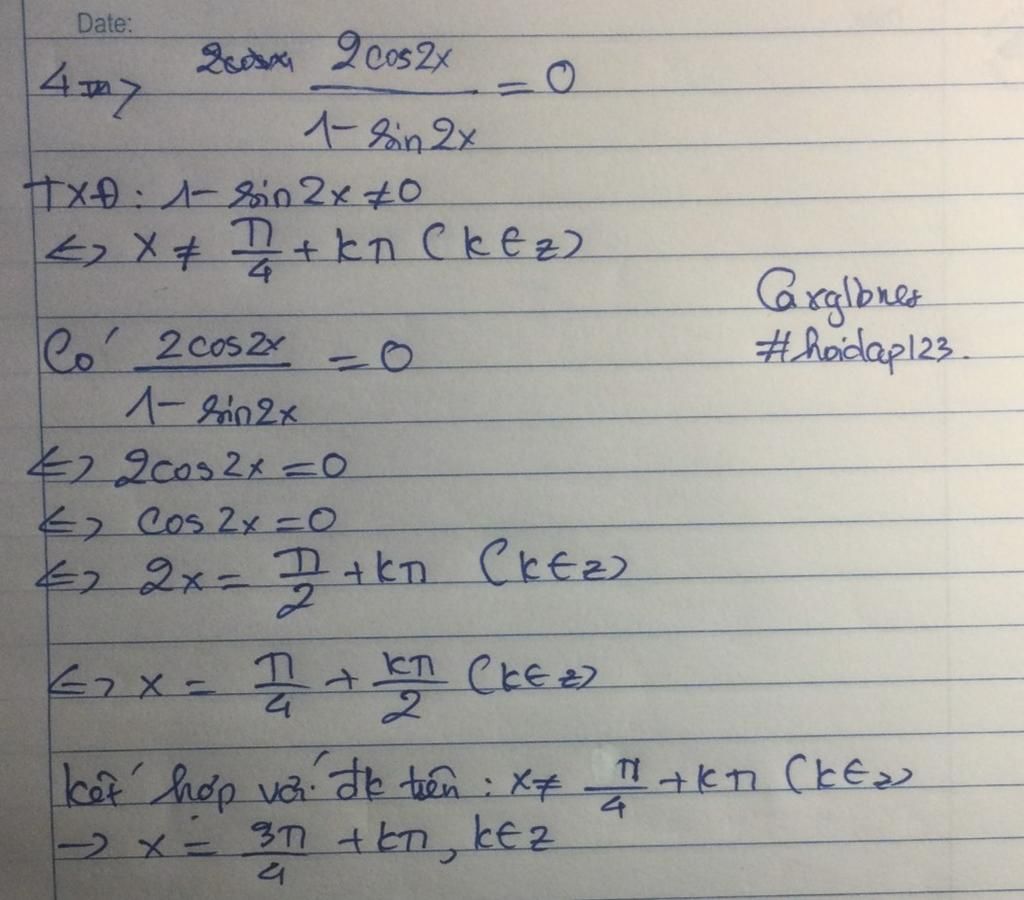 Date:
4 => 2cos2x / 1 - sin2x = 0
TXĐ: 1 - sin2x ≠ 0
<=> x ≠ π/4 + kπ (k ∈ z)
Carglbnes
#hoidap123.
Có 2cos2x / 1 - sin2x = 0
<=> 2cos2x = 0
<=> cos2x = 0
<=> 2x = π/2 + kπ (k ∈ z)
<=> x = π/4 + kπ/2 (k ∈ z)
kết hợp với đk trên : x ≠ π/4 + kπ (k ∈ z)
-> x = 3π/4 + kπ, k ∈ z